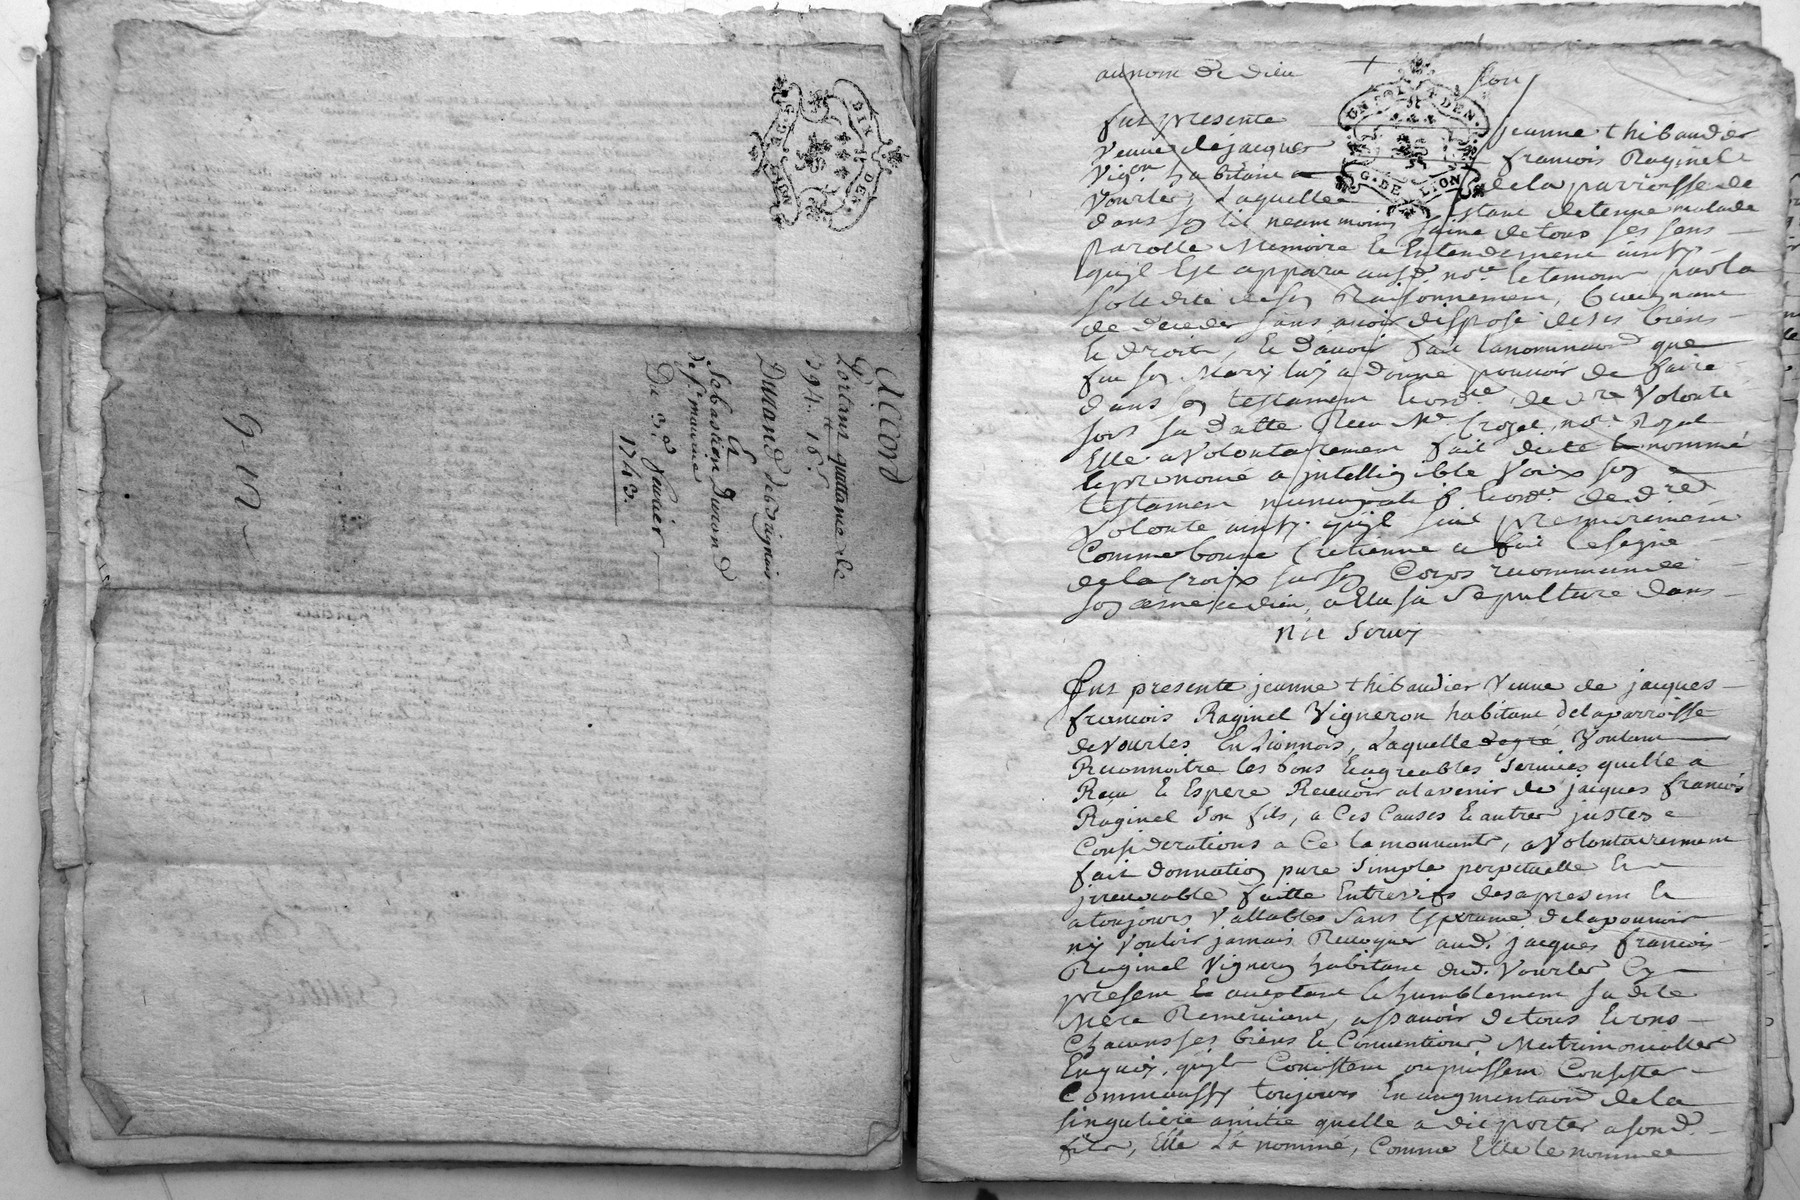 GEN. AG. S
DIX. DEN.
Accord
Portant quittance de
394 tt 16 s
Durand de Brignais
Et
Sebastien Duron d
de St maurice
Du 3.e feuvrier
1743.
g. n
au nom de dieu
fon
UN SOL 4 DEN.
G. DE LION
fut presente jeanne thibaudier
Veuue de jacques francois Raginel
Vigon habitante de la parroisse de
Vourles, Laquelle estant detenue malade
dans son lit neanmoins saine de tous ses sens
parolle Memoire Et Entendement ainsy
quil Est apparu aud. nore et temoins par la
solidité de son Raisonnement, Craignant
de deceder sans auoir disposé de ses biens
et droits, Et d'auoir fait la nomination que
feu son Mary luy a donné pouuoir de faire
dans son testament Et ordce de dre Volonté
sous sa datte Receu Me Croyet nore Royal
Elle a Volontairement fait dicté nommé
et prononcé a intelligible Voix son
testament nuncupatif Et ordce de dre
Volonté ainsy quil suit premierement
Comme bonne Cretienne a fait le signe
de la Croix sur son Corps recommandé
son ame a dieu, a Elu sa Sepulture dans
n'a seruy
Fut presente jeanne thibaudier Veuue de jacques
francois Raginel Vigneron habitant de la parroisse
de Vourles En Lionnois, Laquelle de gré Voulant
Reconnoitre les bons Et agreables seruices quelle a
Receu Et Espere Receuoir a lavenir de jacques francois
Raginel son fils, a Ces Causes Et autres justes
Considerations a Ce la mouuants, a Volontairement
fait donnation pure simple perpetuelle Et
irreuocable faitte Entre vifs des a present Et
a toujours Vallables sans Esperance de la pouuoir
ny Vouloir jamais Reuoquer aud. jacques francois
Raginel Vigneron habitant dud. Vourles Cy
present Et acceptant Et humblement sa dite
Mere Remerciant, a sçauoir de tous Et uns
Chacuns ses biens Et Conuentions Matrimonialles
En quoy quils Consistent ou puissent Consister
Comm'aussy toujours En augmentation de la
singuliere amitié quelle a dit porter a son d.
fils, Elle l'a nommé, Comme Elle le nomme